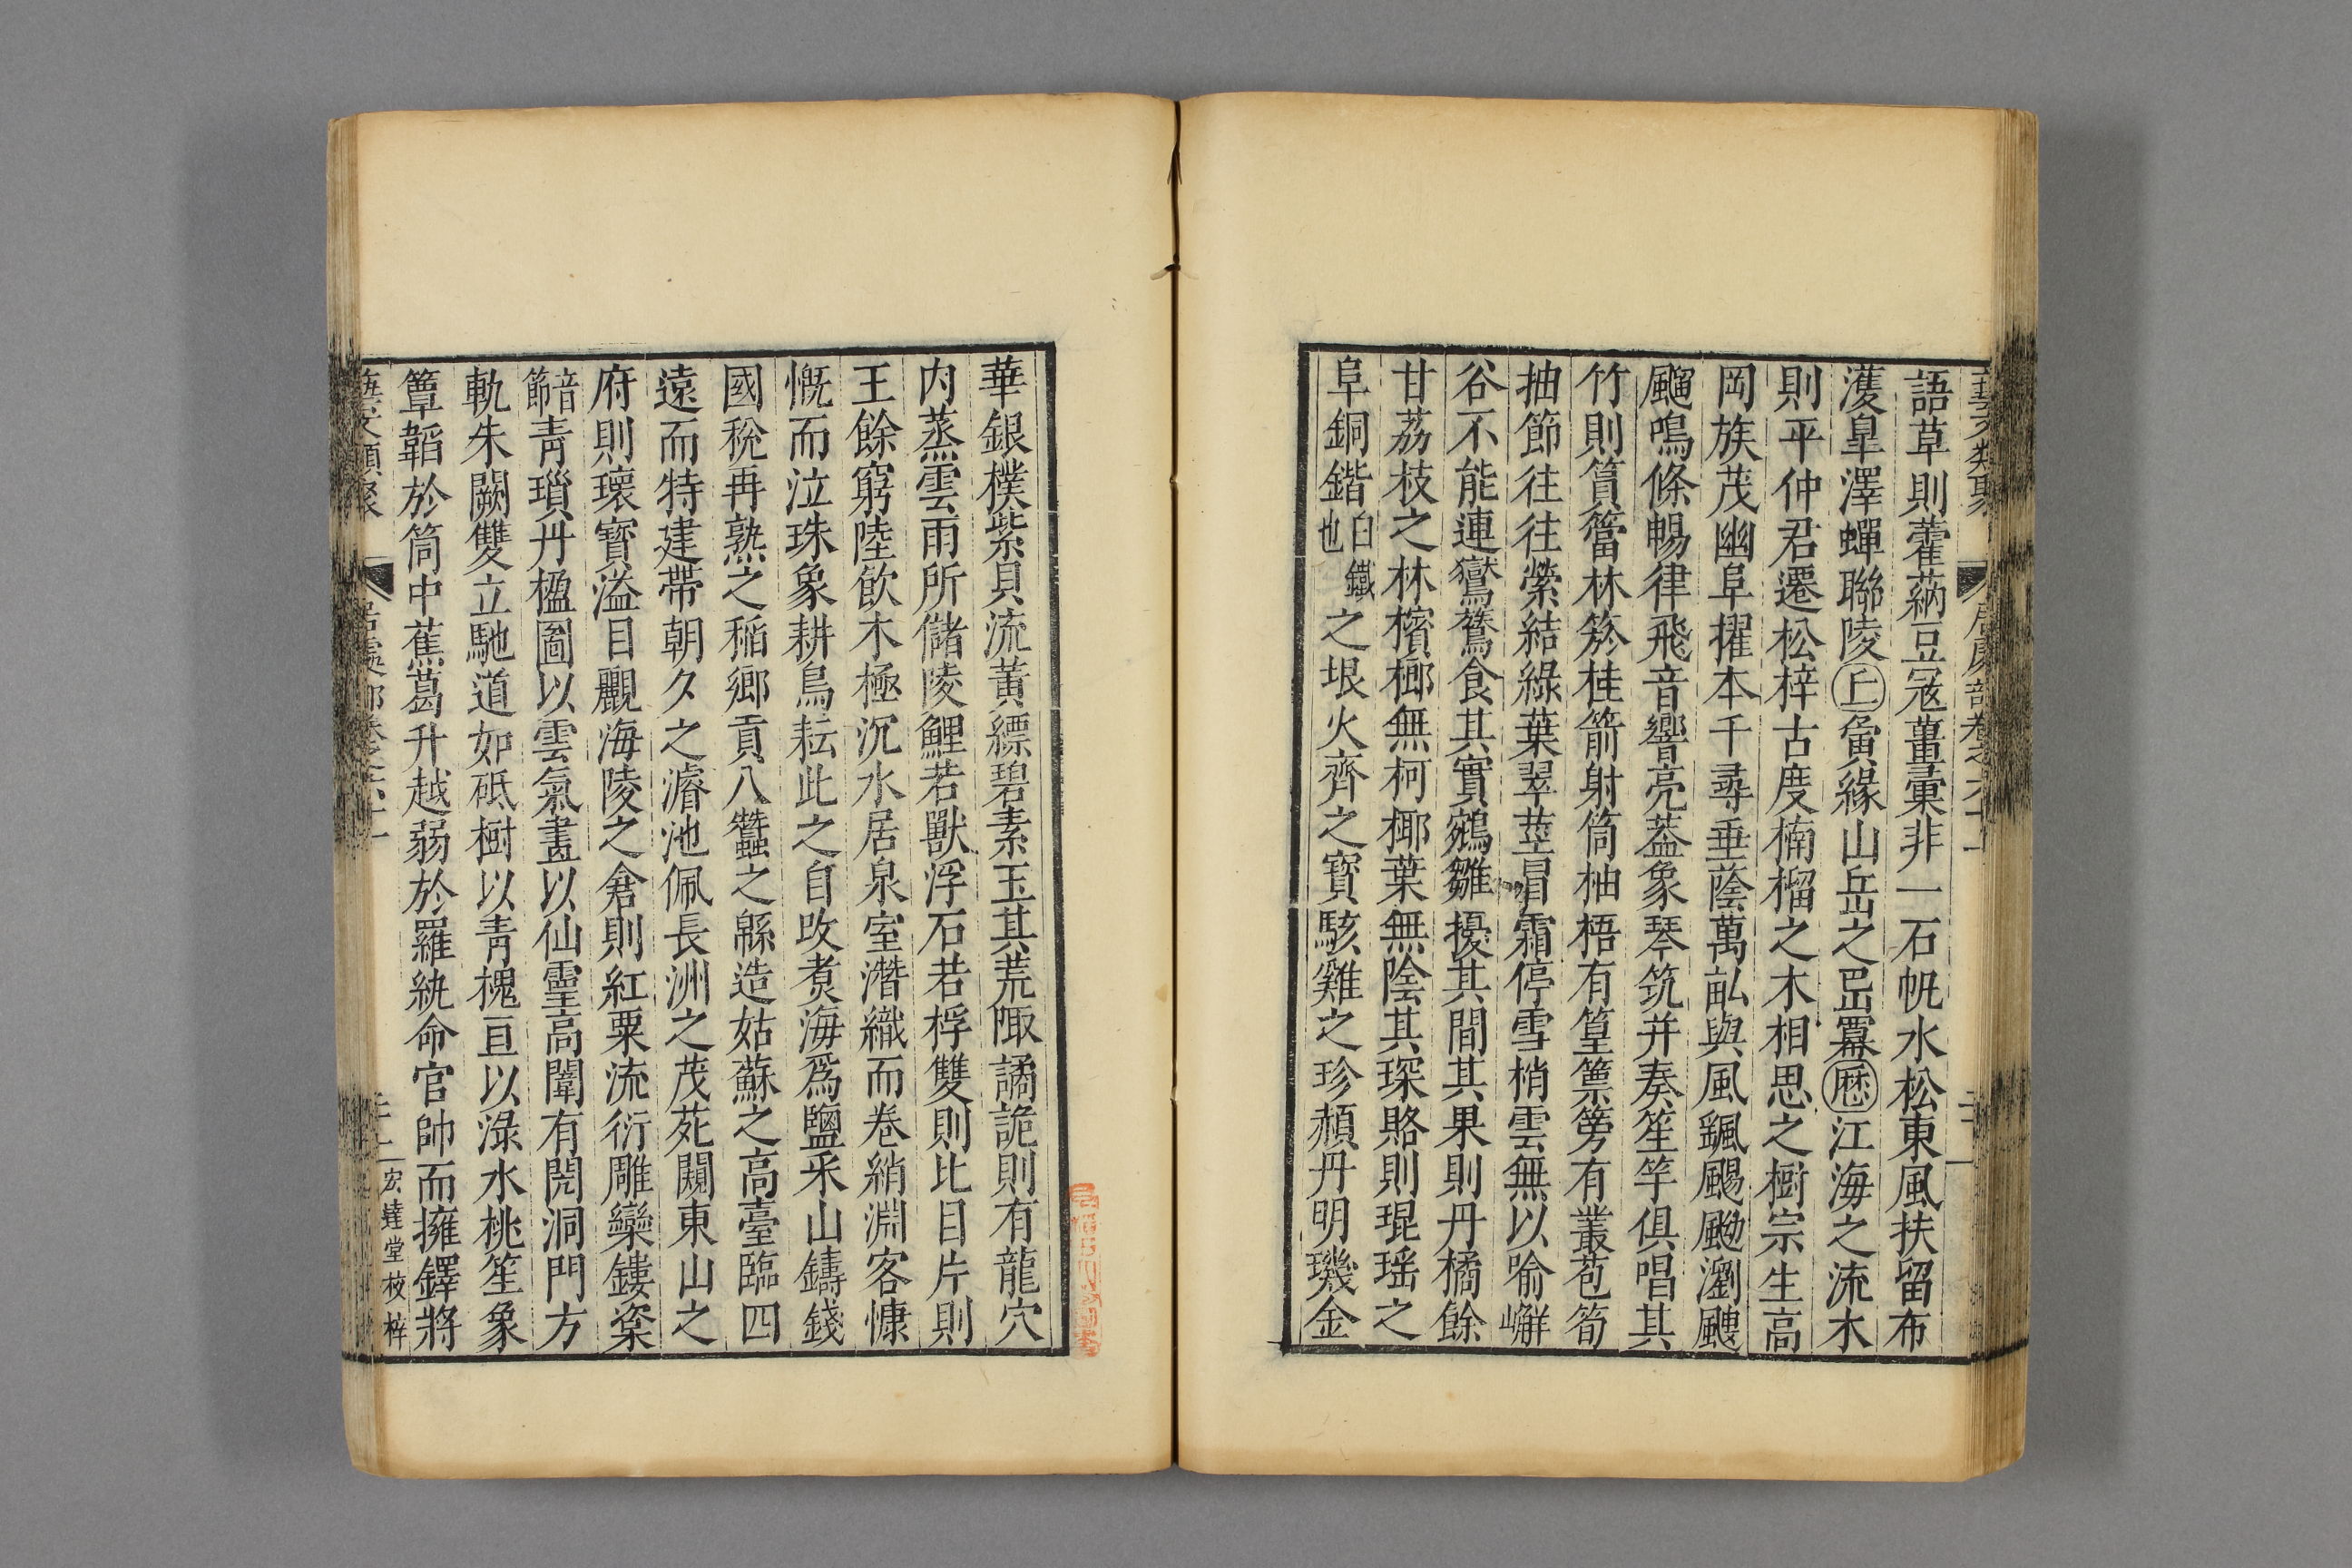 語草則藿蒳豆䓻薑彙非一石帆水松東風扶留布
濩臯澤蟬聯陵丘夤緣山岳之岊羃歷江海之流木
則平仲君遷松梓古度楠榴之木相思之樹宗生高
岡族茂幽阜擢本千尋垂蔭萬畝與風䬙颺颭瀏颼
飀鳴條暢律飛音響亮蓋象琴筑并奏笙竽俱唱其
竹則篔簹林箊桂箭射筒柚梧有篁篻簩有叢苞筍
抽節往往縈結綠葉翠莖冒霜停雪梢雲無以喻嶰
谷不能連鸑鷟食其實鵷雛擾其間其果則丹橘餘
甘荔枝之林檳榔無柯椰葉無陰其琛賂則琨瑶之
阜銅鍇白鐵也之垠火齊之寳駭雞之珍赬丹明璣金
華銀樸紫貝流黃縹碧素玉其荒陬譎詭則有龍穴
内蒸雲雨所儲陵鯉若獸浮石若桴雙則比目片則
王餘窮陸飲木極沉水居泉室潛織而卷綃淵客慷
慨而泣珠象耕鳥耘此之自攻煑海爲鹽釆山鑄錢
國稅再熟之稲鄉貢八蠶之緜造姑蘇之高臺臨四
遠而特建帶朝夕之濬池佩長洲之茂苑闚東山之
府則瓌寳溢目覼海陵之倉則紅粟流衍雕欒鏤楶
音節青瑣丹楹圖以雲氣畫以仙靈高闈有閌洞門方
軌朱闕雙立馳道如砥樹以青槐亘以淥水桃笙象
簟韜於筒中蕉葛升越弱於羅紈命官帥而擁鐸將
宏達堂校梓